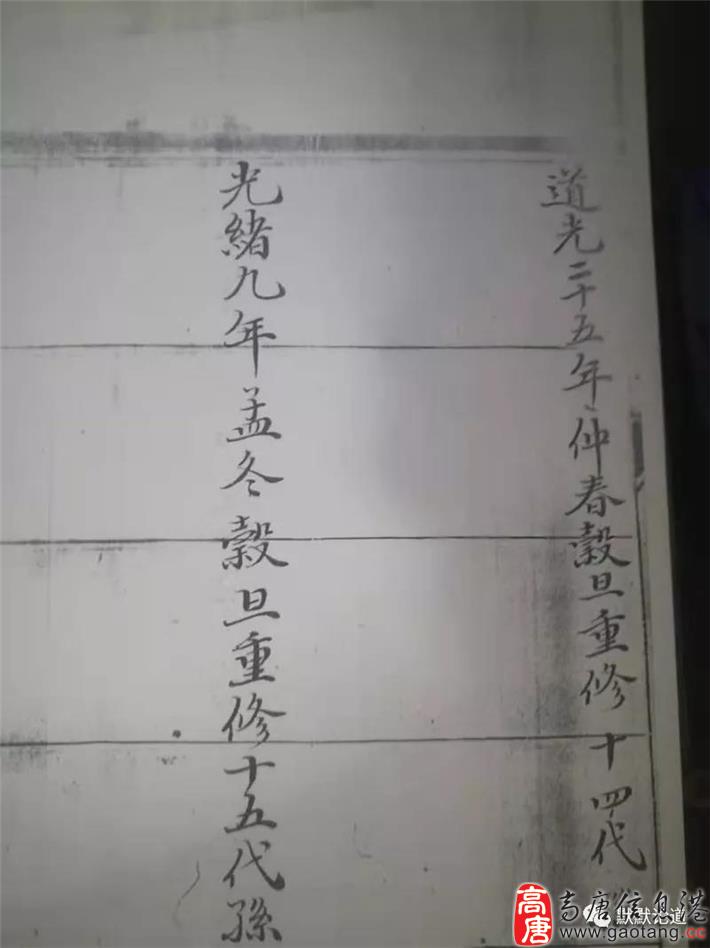 道光二十五年仲春穀旦重修十四代
光緒九年孟冬穀旦重修十五代孫
高唐信息港
默默论道
www.gaotang.cc